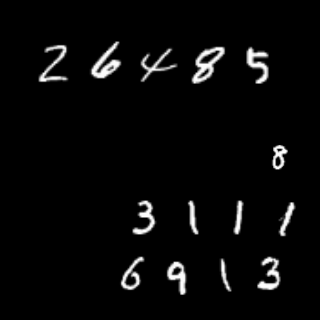 26485
8
3111
6913